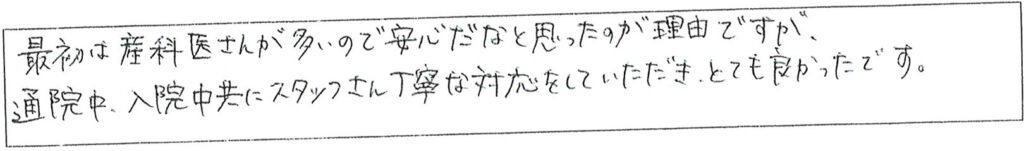 最初は産科医さんが多いので安心だなと思ったのが理由ですが、
通院中、入院中共にスタッフさん丁寧な対応をしていただき、とても良かったです。